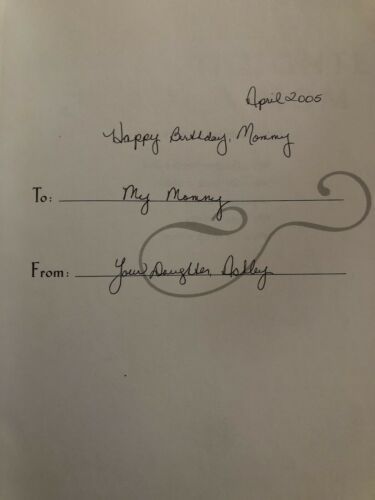 April 2005
Happy Birthday, Mommy
To: My Mommy
From: Your Daughter, Ashley